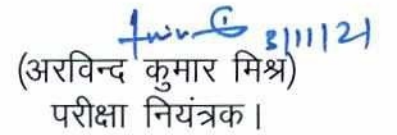 3/11/21
(अरविन्द कुमार मिश्र)
परीक्षा नियंत्रक।